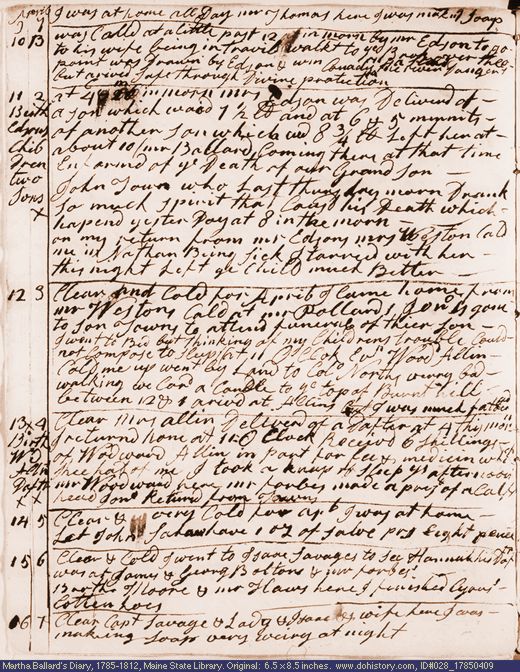 I was at home all Day mr Thomas here I was making Soap
10 B was Calld at a little past 12 in morn by mr Edson to go
to his wife being in travil walkt to ye
point was Drawn by Edson & wm
but arivd Safe through Divine protection
11 2 at 4 in morn mrs Edson was Deliverd of
Birth a Son which waid 7 1/2 lb and at 6 & 5 minnits
Edsons of another Son which wd 8 3/4 lb Left her at
Chil about 10 mr Ballard Coming there at that time
Dren Enformd of ye Death of our Grand Son
two John Town who Last thursday morn Drank
Sons So much Spirit that Caust his Death which
X hapend yester Day at 8 in the morn
on my return from mr Edsons mrs Weston Cald
me in Nathan Being Sick I tarred with her
this night Left ye Child much Better
12 3 Clear and Cold for April I Came home from
mr Westons Cald at mr Pollards Jona is gone
to Son Towns to attend funeral of their Son
I went to Bed but thinking of my Childrens trouble Could
not Compose to Sleep at 11 O Clok Evn Wood Allin
Cald me up went by Land to Colo Norths verry bad
walking we Card a Candle to ye top of Burnt hill
between 12 & 1 arivd at Allins & I was much fatted
13 4 Clear Mrs allin Deliverd of a Dafter at 4 this morn
Birth I returnd home at 12 O Clock Receivd 6 shillings
Wd of Woodward Allin in part for fee & medicin which
Alln hee had of me I took a knap of Sleep ys afternoon
Daftr mr Woodward here mr forbes made a pair of a Calf
X X heard Jona Returnd from Towns
14 5 Clear & very Cold for april I was at home
Let John have 1 oz of Salve pris Eight pence
15 6 Clear & Cold I went to Isaac Savages to See Hannah his Daftr
was at James & Georg Boltons & mr forbes
Brother Moore & mr Haws here I finished Cyrus
Cotten hoes
16 7 Clear Capt Savage & Lady & Isaac & wife here I was
making Soap very weary at night
Martha Ballard's Diary, 1785-1812, Maine State Library. Original: 6.5 x 8.5 inches. www.dohistory.com, ID#028_17850409